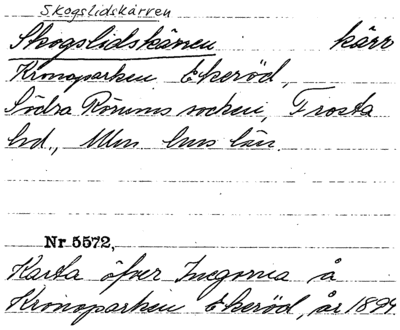 Skogslidskärren
Skogslidskärren kärr
Kronoparken Ekeröd,
Södra Rörums socken, Frosta
hd., Mlm hus län.
Nr 5572,
Karta öfver Inegorna å
Kronoparken Ekeröd, år 1894